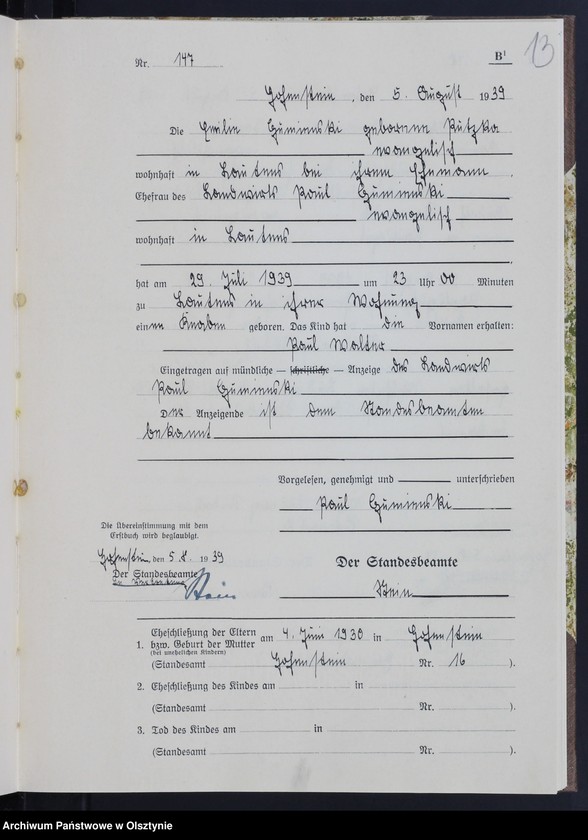 Nr. 147 B¹ 13
Hohenstein, den 5. August 1939
Die Emilie Guminski geborene Putzka
evangelisch
wohnhaft in Lautens bei ihrem Ehemann
Ehefrau des Landwirts Paul Guminski
evangelisch
wohnhaft in Lautens
hat am 29. Juli 1939 um 23 Uhr 00 Minuten
zu Lautens in ihrer Wohnung
einen Knaben geboren. Das Kind hat die Vornamen erhalten:
Paul Walter
Eingetragen auf mündliche — schriftliche — Anzeige des Landwirts
Paul Guminski
Der Anzeigende ist dem Standesbeamten
bekannt
Vorgelesen, genehmigt und unterschrieben
Paul Guminski
Die Übereinstimmung mit dem
Erstbuch wird beglaubigt.
Hohenstein, den 5.8. 1939
Der Standesbeamte
In Vertretung
Stein
Der Standesbeamte
Stein
1. Eheschließung der Eltern
bzw. Geburt der Mutter am 4. Juni 1930 in Hohenstein
(bei unehelichen Kindern)
(Standesamt Hohenstein Nr. 16 ).
2. Eheschließung des Kindes am in
(Standesamt Nr. ).
3. Tod des Kindes am in
(Standesamt Nr. ).
Archiwum Państwowe w Olsztynie